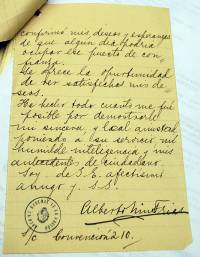 confirmó mis deseos y esperanzas
de que algun dia podria
ocupar ese puesto de con-
fianza.
Se ofrece la oportunidad
de ver satisfechos mis de-
seos.
Ha hecho todo cuanto me fué
posible por demostrarle
mi sincera y leal amistad
poniendo a su servicio mi
humilde inteligencia y mis
antecedentes de ciudadano.
Soy de S.E. afectísimo
amigo y S.S.
Alberto Nin Frias
S/c Convención 210.